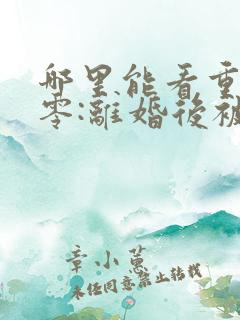 哪里能看重
零:離婚後被
章小蕙
未经同意禁止转载